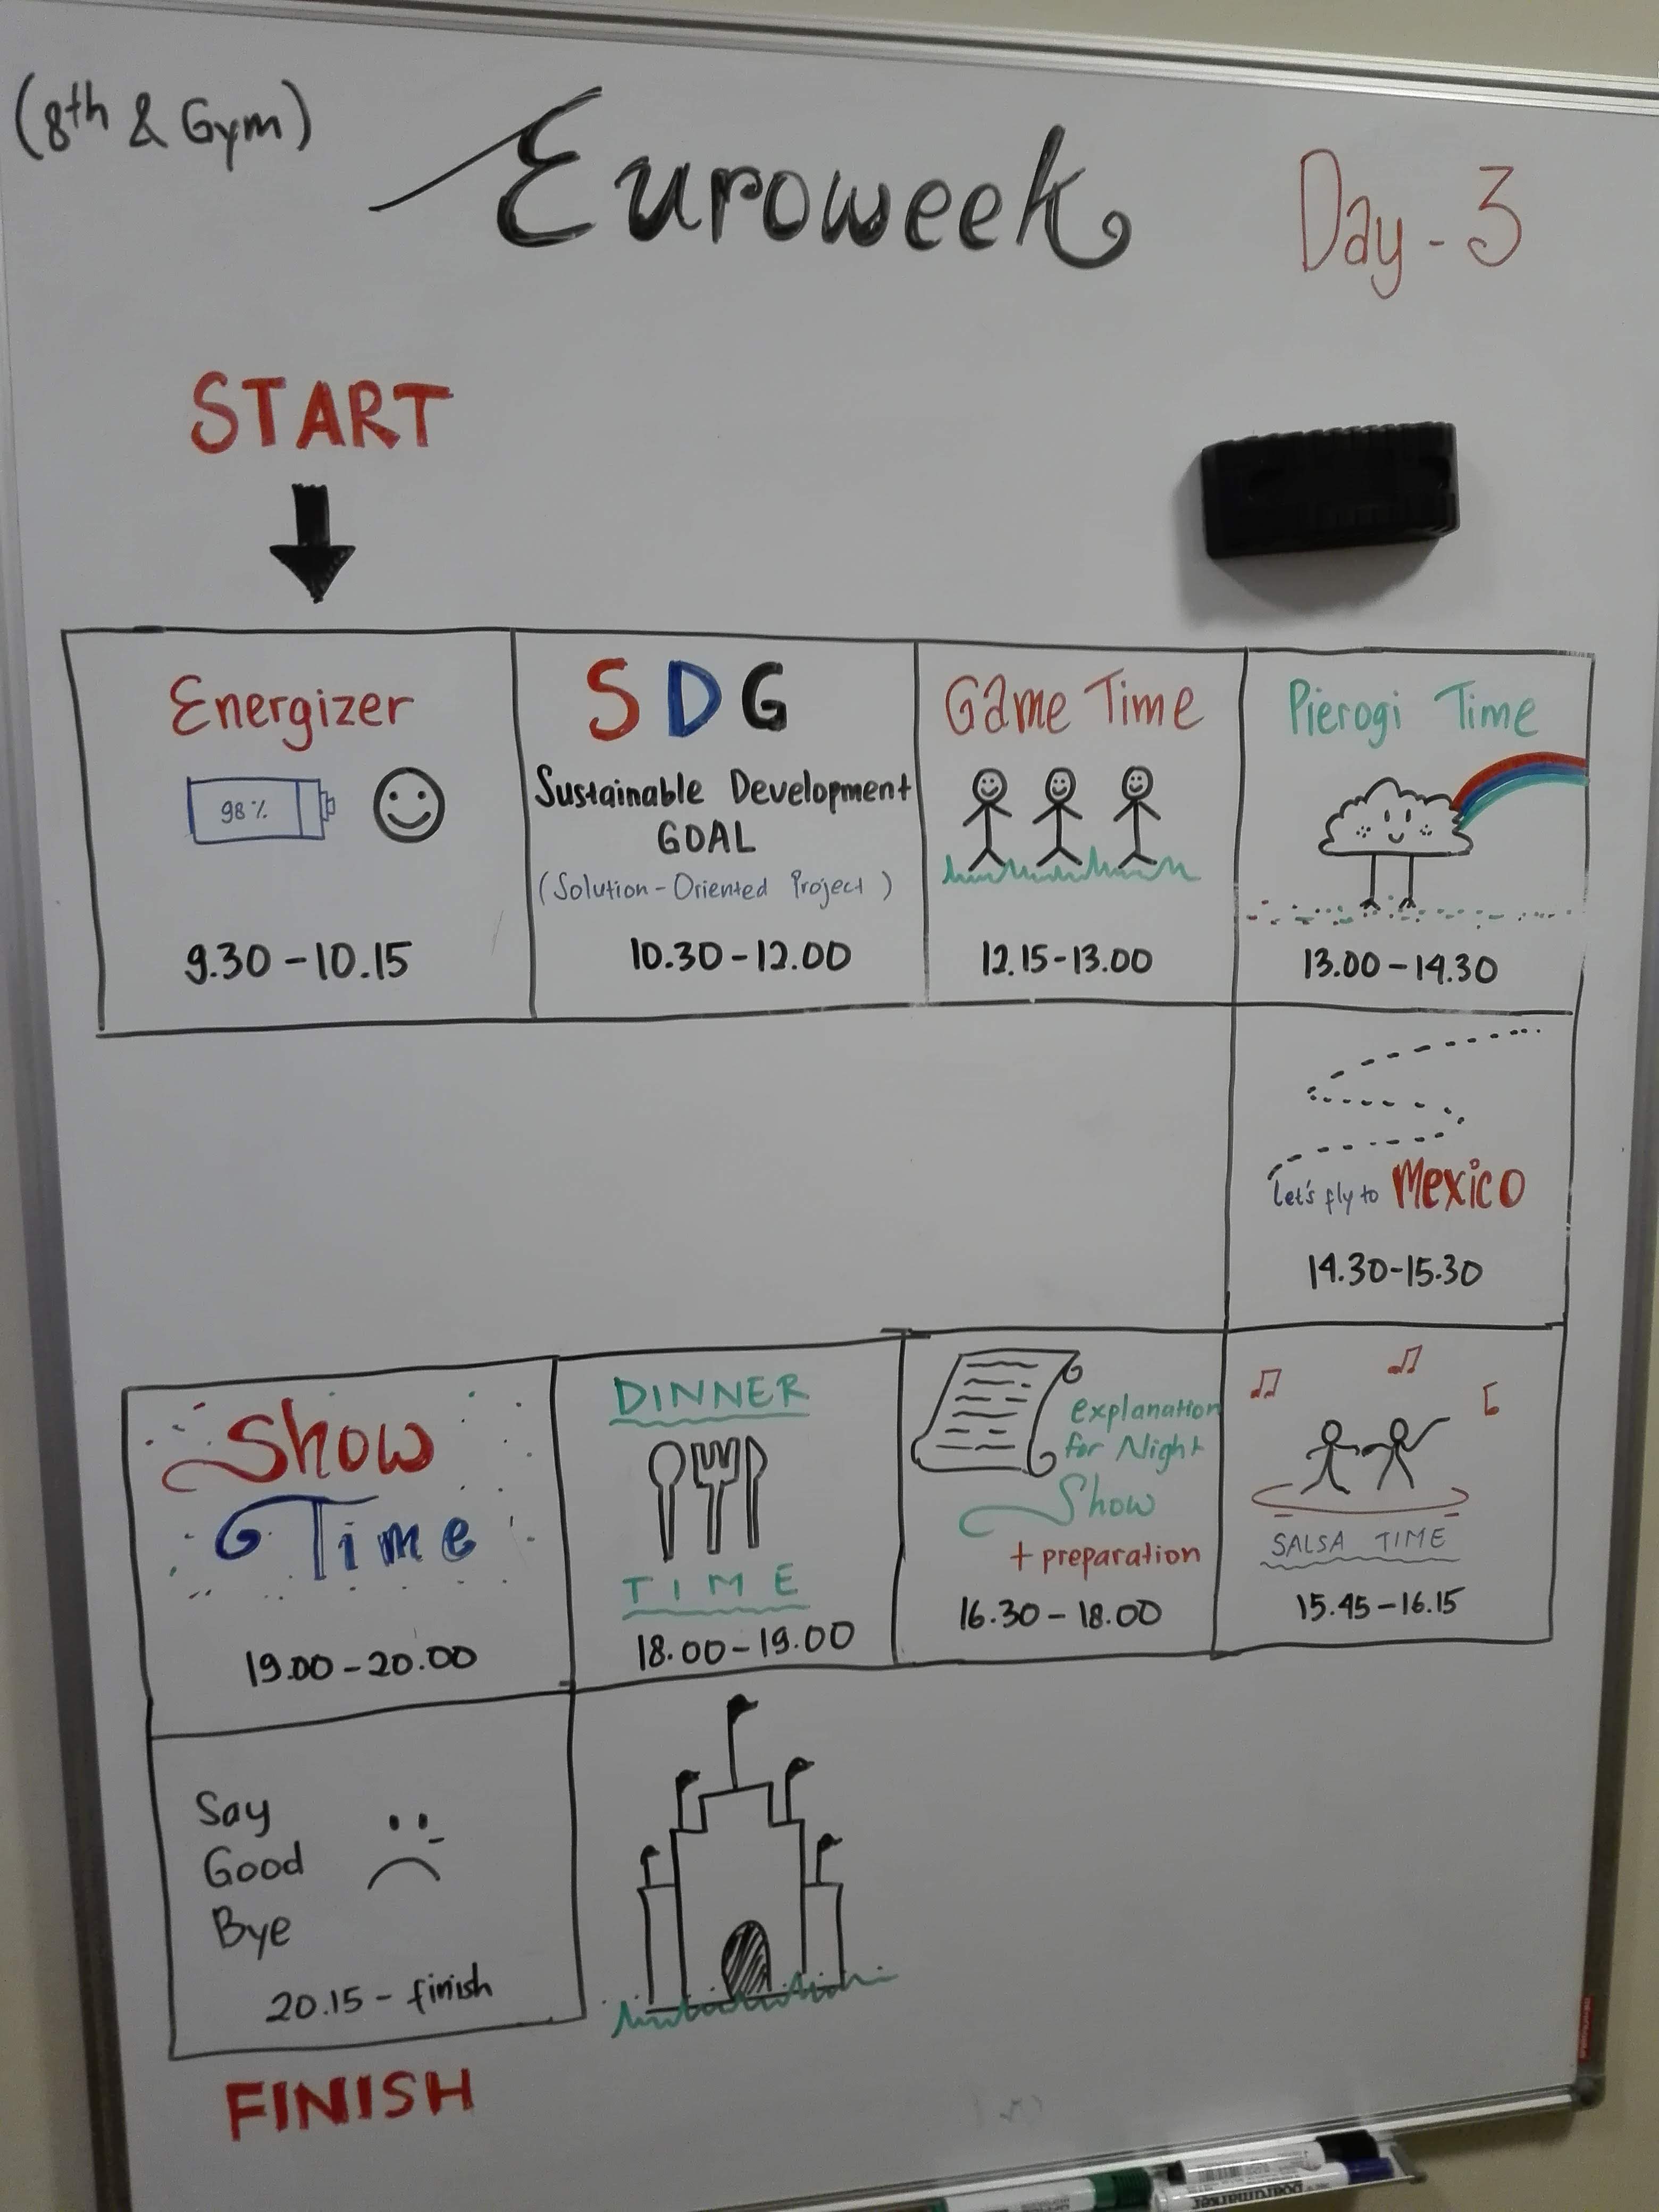 (8th & Gym)
Euroweek
Day - 3
START
Energizer
98%
9.30 - 10.15
SDG
Sustainable Development
GOAL
(Solution - Oriented Project)
10.30 - 12.00
Game Time
12.15 - 13.00
Pierogi Time
13.00 - 14.30
Let's fly to Mexico
14.30 - 15.30
SALSA TIME
15.45 - 16.15
explanation
for Night
Show
+ preparation
16.30 - 18.00
DINNER
TIME
18.00 - 19.00
Show
Time
19.00 - 20.00
Say
Good
Bye
20.15 - finish
FINISH
boardmarker